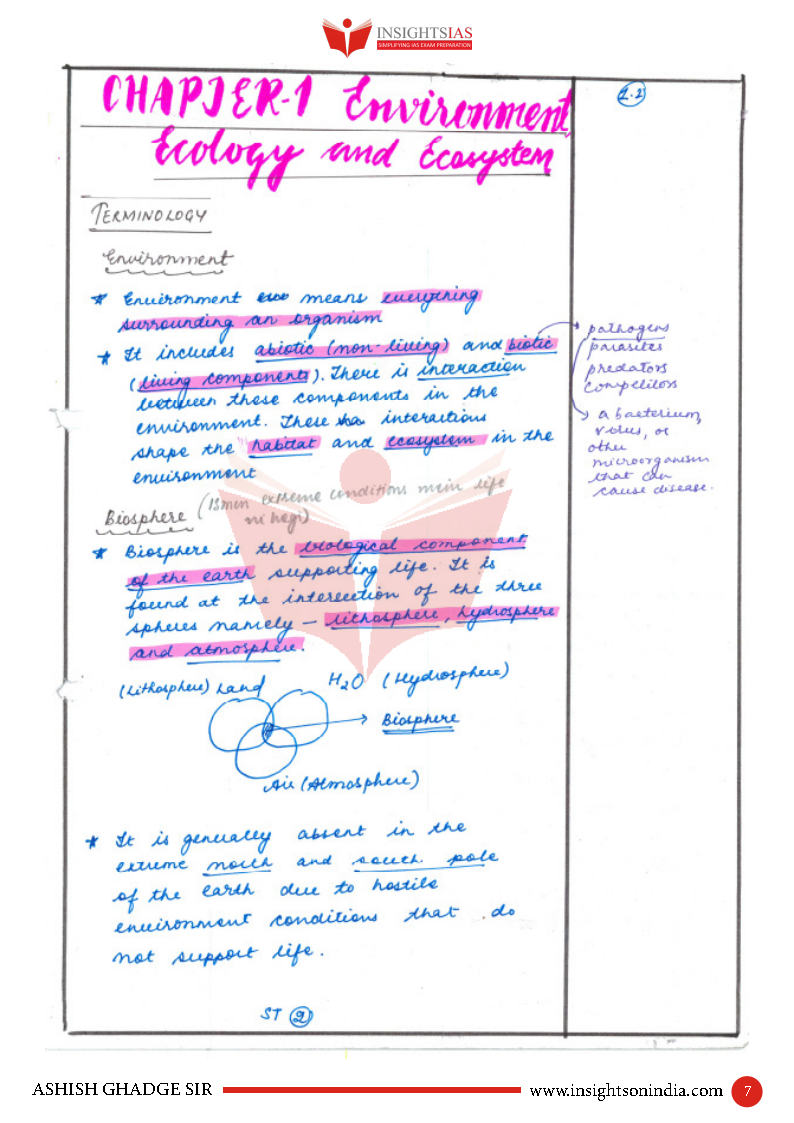 INSIGHTSIAS
SIMPLIFYING IAS EXAM PREPARATION
CHAPTER-1 Environment,
Ecology and Ecosystem
1.1
TERMINOLOGY
Environment
* Environment means everything
surrounding an organism
* It includes abiotic (non-living) and biotic
(living components). There is interaction
between these components in the
environment. These interactions
shape the habitat and ecosystem in the
environment
pathogens
parasites
predators
competitors
a bacterium,
virus, or
other
microorganism
that can
cause disease.
Biosphere (isme extreme conditions mein life
ni hogi)
* Biosphere is the biological component
of the earth supporting life. It is
found at the intersection of the three
spheres namely – lithosphere, hydrosphere
and atmosphere.
(Lithosphere) Land
H2O (Hydrosphere)
Biosphere
Air (Atmosphere)
* It is generally absent in the
extreme north and south pole
of the earth due to hostile
environment conditions that do
not support life.
ST 2
ASHISH GHADGE SIR
www.insightsonindia.com
7